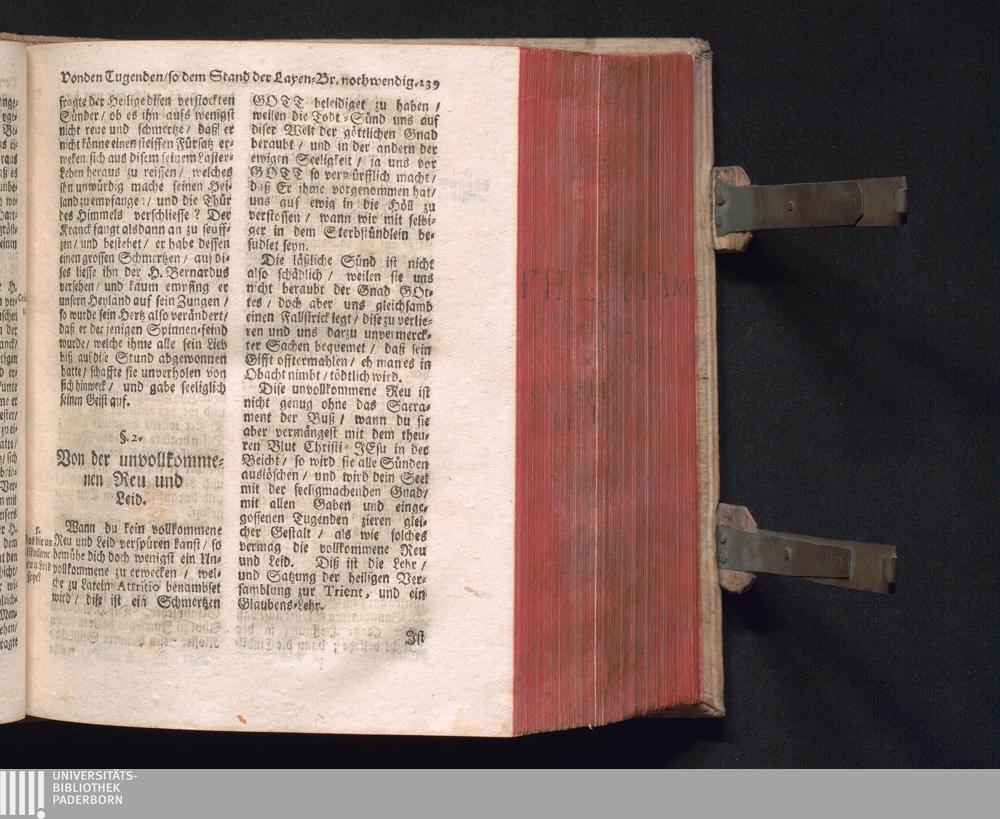 Von den Tugenden/ so dem Stand der Layen-Br. nothwendig. 139
fragte der Heilige disen verstockten
Sünder/ ob es ihn aufs wenigst
nicht reue und schmertze/ daß er
nicht könne einen steiffen Fürsatz er-
weken sich aus disem seinem Laster-
Leben heraus zu reissen/ welches
ihn unwürdig mache seinen Hei-
land zu empfangen/ und die Thür
des Himmels verschliesse? Der
Kranck fangt alsdann an zu seuff-
zen/ und bestehet/ er habe dessen
einen grossen Schmertzen/ auf di-
ses liesse ihn der H. Bernardus
versehen/ und kaum empfing er
unsern Heyland auf sein Zungen/
so wurde sein Hertz also verändert/
daß er derjenigen Spinnen-feind
wurde/ welche ihme alle sein Lieb
biß auf dise Stund abgewonnen
hatte/ schaffte sie unverholen von
sich hinweck/ und gabe seeliglich
seinen Geist auf.
§. 2.
Von der unvollkomme-
nen Reu und
Leid.
Wann du kein vollkommene
Reu und Leid verspüren kanst/ so
bemühe dich doch wenigst ein Un-
vollkommene zu erwecken/ wel-
che zu Latein Attritio benambset
wird/ dise ist ein Schmertzen
GOTT beleidiget zu haben/
weilen die Todt-Sünd uns auf
diser Welt der göttlichen Gnad
beraubt/ und in der andern der
ewigen Seeligkeit/ ja uns vor
GOTT so verwürfflich macht/
daß Er ihme vorgenommen hat/
uns auf ewig in die Höll zu
verstossen/ wann wir mit selbi-
ger in dem Sterbstündlein be-
sudlet seyn.
Die läßliche Sünd ist nicht
also schädlich/ weilen sie uns
nicht beraubt der Gnad GOt-
tes/ doch aber uns gleichsamb
einen Fallstrick legt/ dise zu verlie-
ren und uns darzu unvermerck-
ter Sachen bequemet/ daß sein
Gifft offtermahlen/ eh man es in
Obacht nimbt/ tödtlich wird.
Dise unvollkommene Reu ist
nicht genug ohne das Sacra-
ment der Buß/ wann du sie
aber vermängest mit dem theu-
ren Blut Christi JEsu in der
Beicht/ so wird sie alle Sünden
auslöschen/ und wird dein Seel
mit der seeligmachenden Gnad/
mit allen Gaben und einge-
gossenen Tugenden zieren glei-
cher Gestalt/ als wie solches
vermag die vollkommene Reu
und Leid. Diß ist die Lehr/
und Satzung der heiligen Ver-
samblung zur Trient, und ein
Glaubens-Lehr.
Ist
UNIVERSITÄTS-
BIBLIOTHEK
PADERBORN